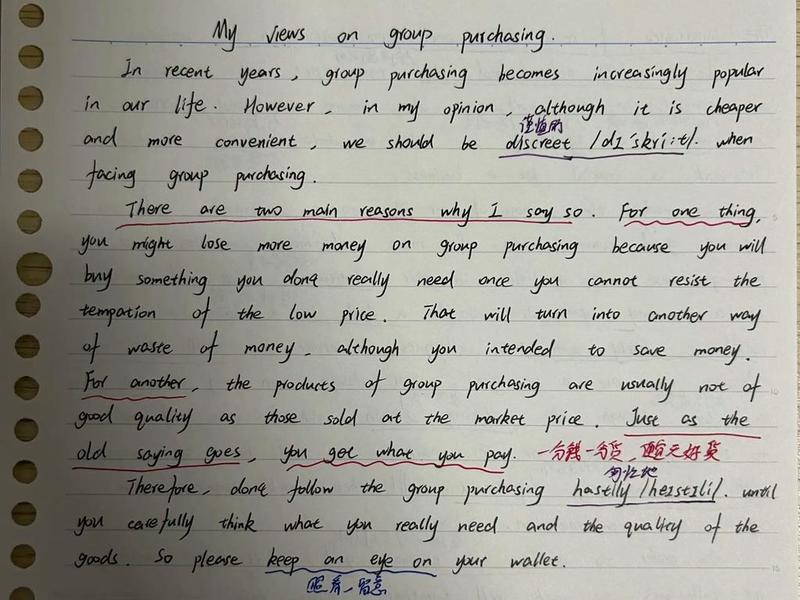 My views on group purchasing.
In recent years, group purchasing becomes increasingly popular
in our life. However, in my opinion, although it is cheaper
谨慎的
and more convenient, we should be discreet /dɪˈskriːt/. when
facing group purchasing.
There are two main reasons why I say so. For one thing,
you might lose more money on group purchasing because you will
buy something you dong really need once you cannot resist the
tempation of the low price. That will turn into another way
of waste of money, although you intended to save money.
For another, the products of group purchasing are usually not of
good quality as those sold at the market price. Just as the
old saying goes, you get what you pay. 一分钱一分货,便宜无好货
匆忙地
Therefore, dong follow the group purchasing hastily /heɪstɪli/. until
you carefully think what you really need and the quality of the
goods. So please keep an eye on your wallet.
照看,留意